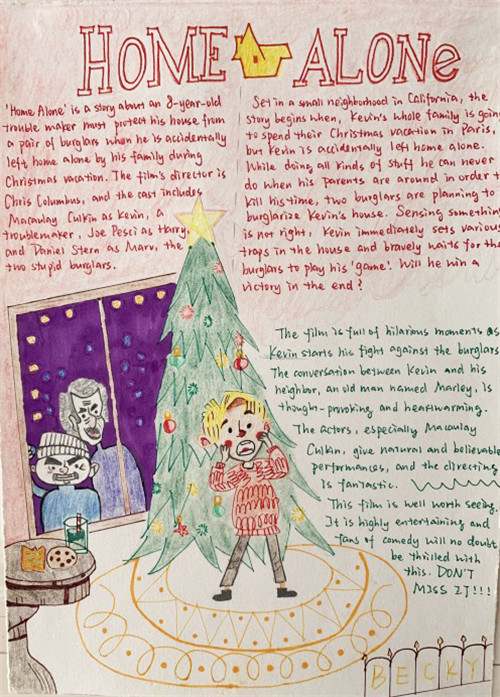 HOME ALONE
'Home Alone' is a story about an 8-year-old
trouble maker must protect his house from
a pair of burglars when he is accidentally
left home alone by his family during
Christmas vacation. The film's director is
Chris Columbus, and the cast includes
Macaulay Culkin as Kevin, a
troublemaker, Joe Pesci as Harry,
and Daniel Stern as Marv, the
two stupid burglars.
Set in a small neighborhood in California, the
story begins when, Kevin's whole family is going
to spend their Christmas vacation in Paris,
but Kevin is accidentally left home alone.
While doing all kinds of stuff he can never
do when his parents are around in order to
kill his time, two burglars are planning to
burglarize Kevin's house. Sensing something
is not right, Kevin immediately sets various
traps in the house and bravely waits for the
burglars to play his 'game'. Will he win a
victory in the end?
The film is full of hilarious moments as
Kevin starts his fight against the burglars.
The conversation between Kevin and his
neighbor, an old man named Marley, is
though-provoking and heartwarming.
The actors, especially Macaulay
Culkin, give natural and believable
performances, and the directing
is fantastic.
This film is well worth seeing.
It is highly entertaining and
fans of comedy will no doubt
be thrilled with
this. DON'T
MISS IT!!!
BECKY